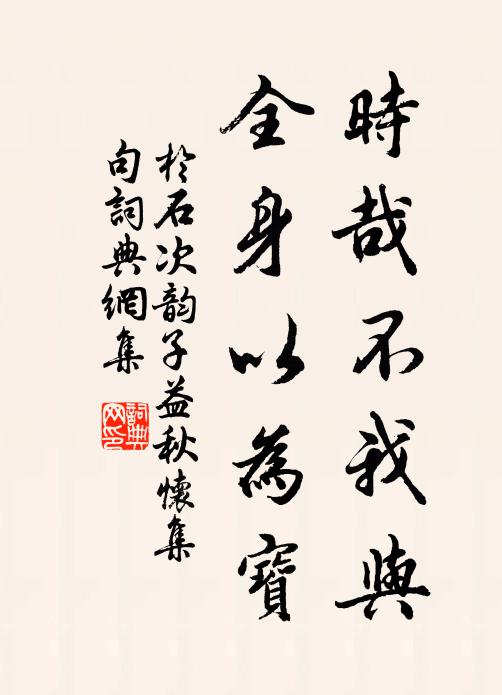 時哉不我與
全身以為寶
於石次韵子益秋懷集
句詞典網集
詞典
网印